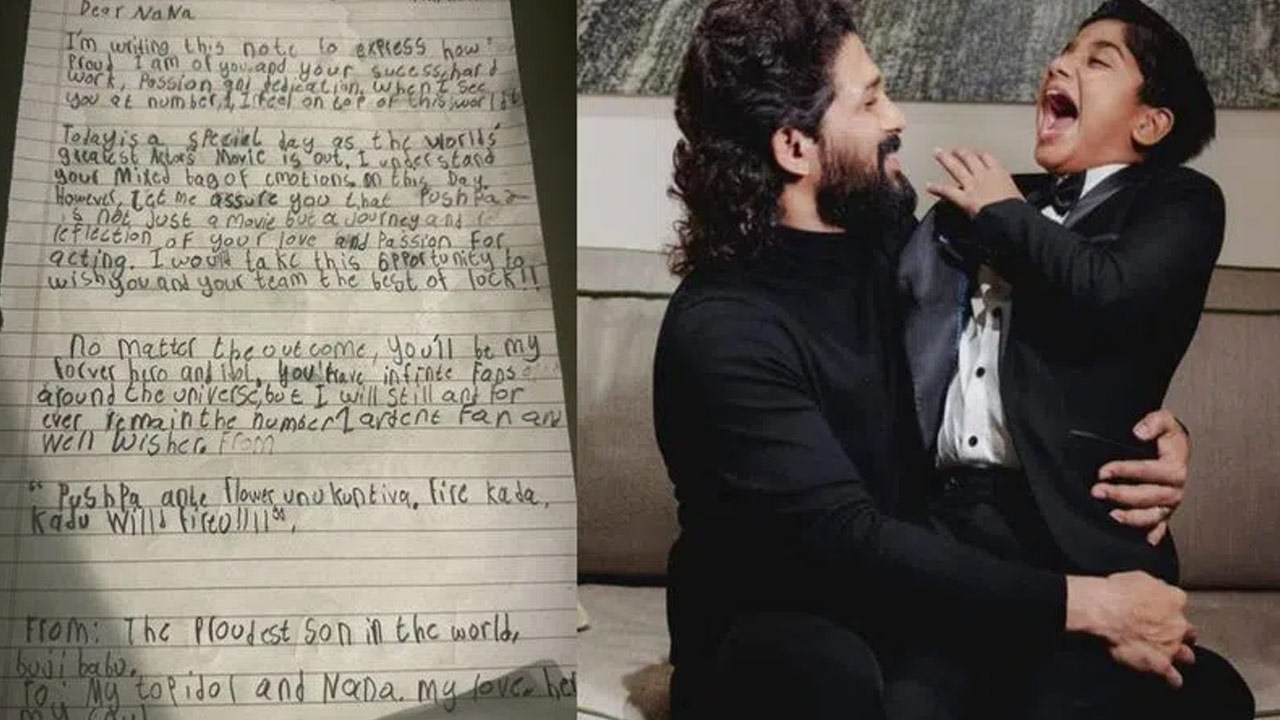 Dear NaNa
I'm writing this note to express how
Proud I am of you and your sucess, hard
work, Passion and dedication. When I see
you at number 1, I feel on top of this world
Today is a special day as the worlds'
greatest Actors Movie is out. I understand
your Mixed bag of emotions on this Day.
However, Let me assure you that PushPa 2
is not just a movie but a Journey and
reflection of your love and Passion for
acting. I would take this opportunity to
wish you and your team the best of lock!!
No matter the outcome, you'll be my
forver hero and idol. You'have infinte Fans
around the universe, but I will still and for
ever remain the number 1 ardent Fan and
Well Wisher. From
" PushPa ante flower unukuntiva, fire kada,
Kadu Willd fireo!!!!",
From: The Proudest son in the world,
buji babu.
To: My top idol and NaNa. My love. her
My